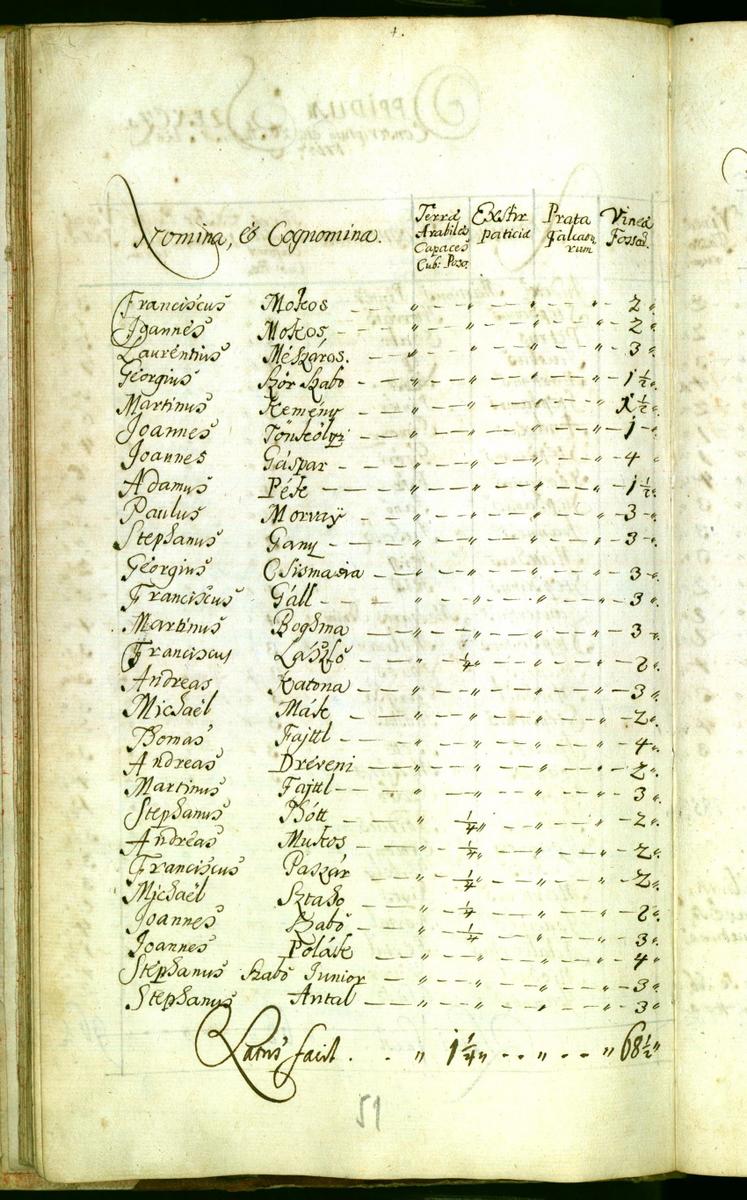 Nomina, & Cognomina. Terræ Arabiles Capaces Cub: Poso. Exstirpaticiæ Prata Falcatorum Vineæ Fossat.
Franciscus Mokos — " — " — " — " 2 "
Joannes Mokos — " — " — " — " 2 "
Laurentius Mészáros. — " — " — " — " 3 "
Georgius Szőr Szabo — " — " — " — " 1 1/2 "
Martinus Kemény — " — " — " — " 1 1/2 "
Joannes Tönkölÿi — " — " — " — " 1 "
Joannes Gáspar — " — " — " — " 4 "
Adamus Pék — " — " — " — " 1 1/2 "
Paulus Morvaÿ — " — " — " — " 3 "
Stephanus Gany — " — " — " — " 3 "
Georgius Csismasia — " — " — " — " 3 "
Franciscus Gáll — " — " — " — " 3 "
Martinus Boghma — " — " — " — " 3 "
Franciscus László — " 1/4 " — " — " 2 "
Andreas Katona — " — " — " — " 3 "
Michaël Mák — " — " — " — " 2 "
Thomas Fajttl — " — " — " — " 4 "
Andreas Dréveni — " — " — " — " 2 "
Martinus Fajtl — " — " — " — " 3 "
Stephanus Thótt — " 1/4 " — " — " 2 "
Andreas Mukos — " 1/4 " — " — " 2 "
Franciscus Paszár — " 1/4 " — " — " 2 "
Michaël Sztaho — " 1/4 " — " — " 2 "
Joannes Szabó — " 1/4 " — " — " 3 "
Joannes Polák — " — " — " — " 4 "
Stephanus Szabó Junior — " — " — " — " 3 "
Stephanus Antal — " — " — " — " 3 "
Latus facit . . " 1 1/4 " . . " . . " 68 1/2 "
51